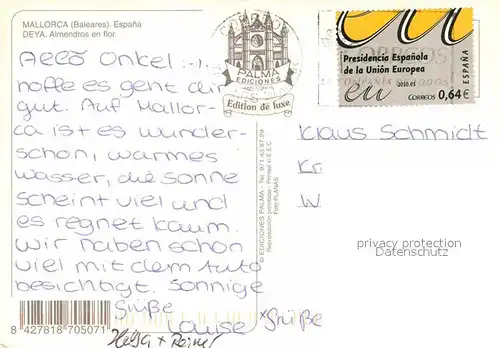 MALLORCA (Baleares). España
DEYA. Almendros en flor.
Onkel
hoffe es geht dir
gut. Auf Mallor-
ca ist es wunder-
schön, warmes
wasser, die sonne
scheint viel und
es regnet kaum.
wir haben schon
viel mit dem Auto
besichtigt. Sonnige
Grüße
Louise
8 427818 705071
+ Reiner
Grüße
PALMA
EDICIONES
Edition de luxe
© EDICIONES PALMA - Tel. 971 43 87 29
Reproducción prohibida - Printed in E.E.C.
Foto PLANAS
eu
ESPAÑA
Presidencia Española
de la Unión Europea
eu 2010.es
CORREOS 0,64 €
Klaus Schmidt
Kr
W
privacy protection
Datenschutz